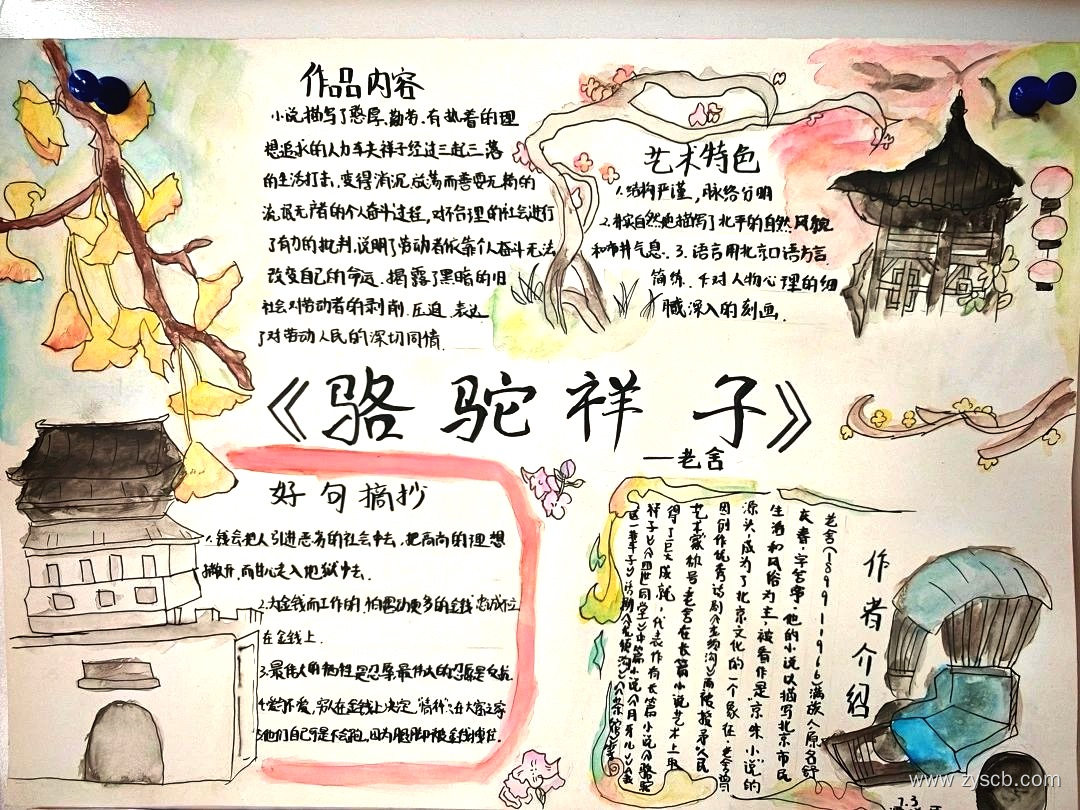 作品内容
小说描写了憨厚、勤劳、有执着的理
想追求的人力车夫祥子经过三起三落
的生活打击,变得消沉放荡而善耍无赖的
流氓无产者的个人奋斗过程,对不合理的社会进行
了有力的批判,说明了劳动者依靠个人奋斗无法
改变自己的命运,揭露了黑暗的旧
社会对劳动者的剥削、压迫,表达
了对劳动人民的深切同情.
艺术特色
1.结构严谨,脉络分明
2.真实自然地描写了北平的自然风貌
和市井气息.3.语言用北京口语方言
简练.4.对人物心理的细
腻深入的刻画.
《骆驼祥子》
—老舍
好句摘抄
1.钱会把人引进恶劣的社会中去,把高尚的理想
撇开,而甘心走入地狱中去.
2.为金钱而工作的,怕遇到更多的金钱,忠诚
在金钱上.
3.最伟大的牺牲是忍辱,最伟大的忍辱是反抗
4.爱与不爱,穷人在金钱上决定,"情种"在大家
作者介绍
老舍(1899-1966满族人原名舒
庆春,字舍予,他的小说以描写北京市民
生活和风俗为主,被看作是"京味小说"的
源头,成为了北京文化的一个象征.老舍曾
因创作优秀话剧《龙须沟》而被授予人民
艺术家称号,老舍在长篇小说艺术上取
得了巨大成就,代表作有长篇小说《骆驼
祥子》《四世同堂》中篇小说《月牙儿》《我
这一辈子》话剧《龙须沟》《茶馆》等.
www.zyscb.com